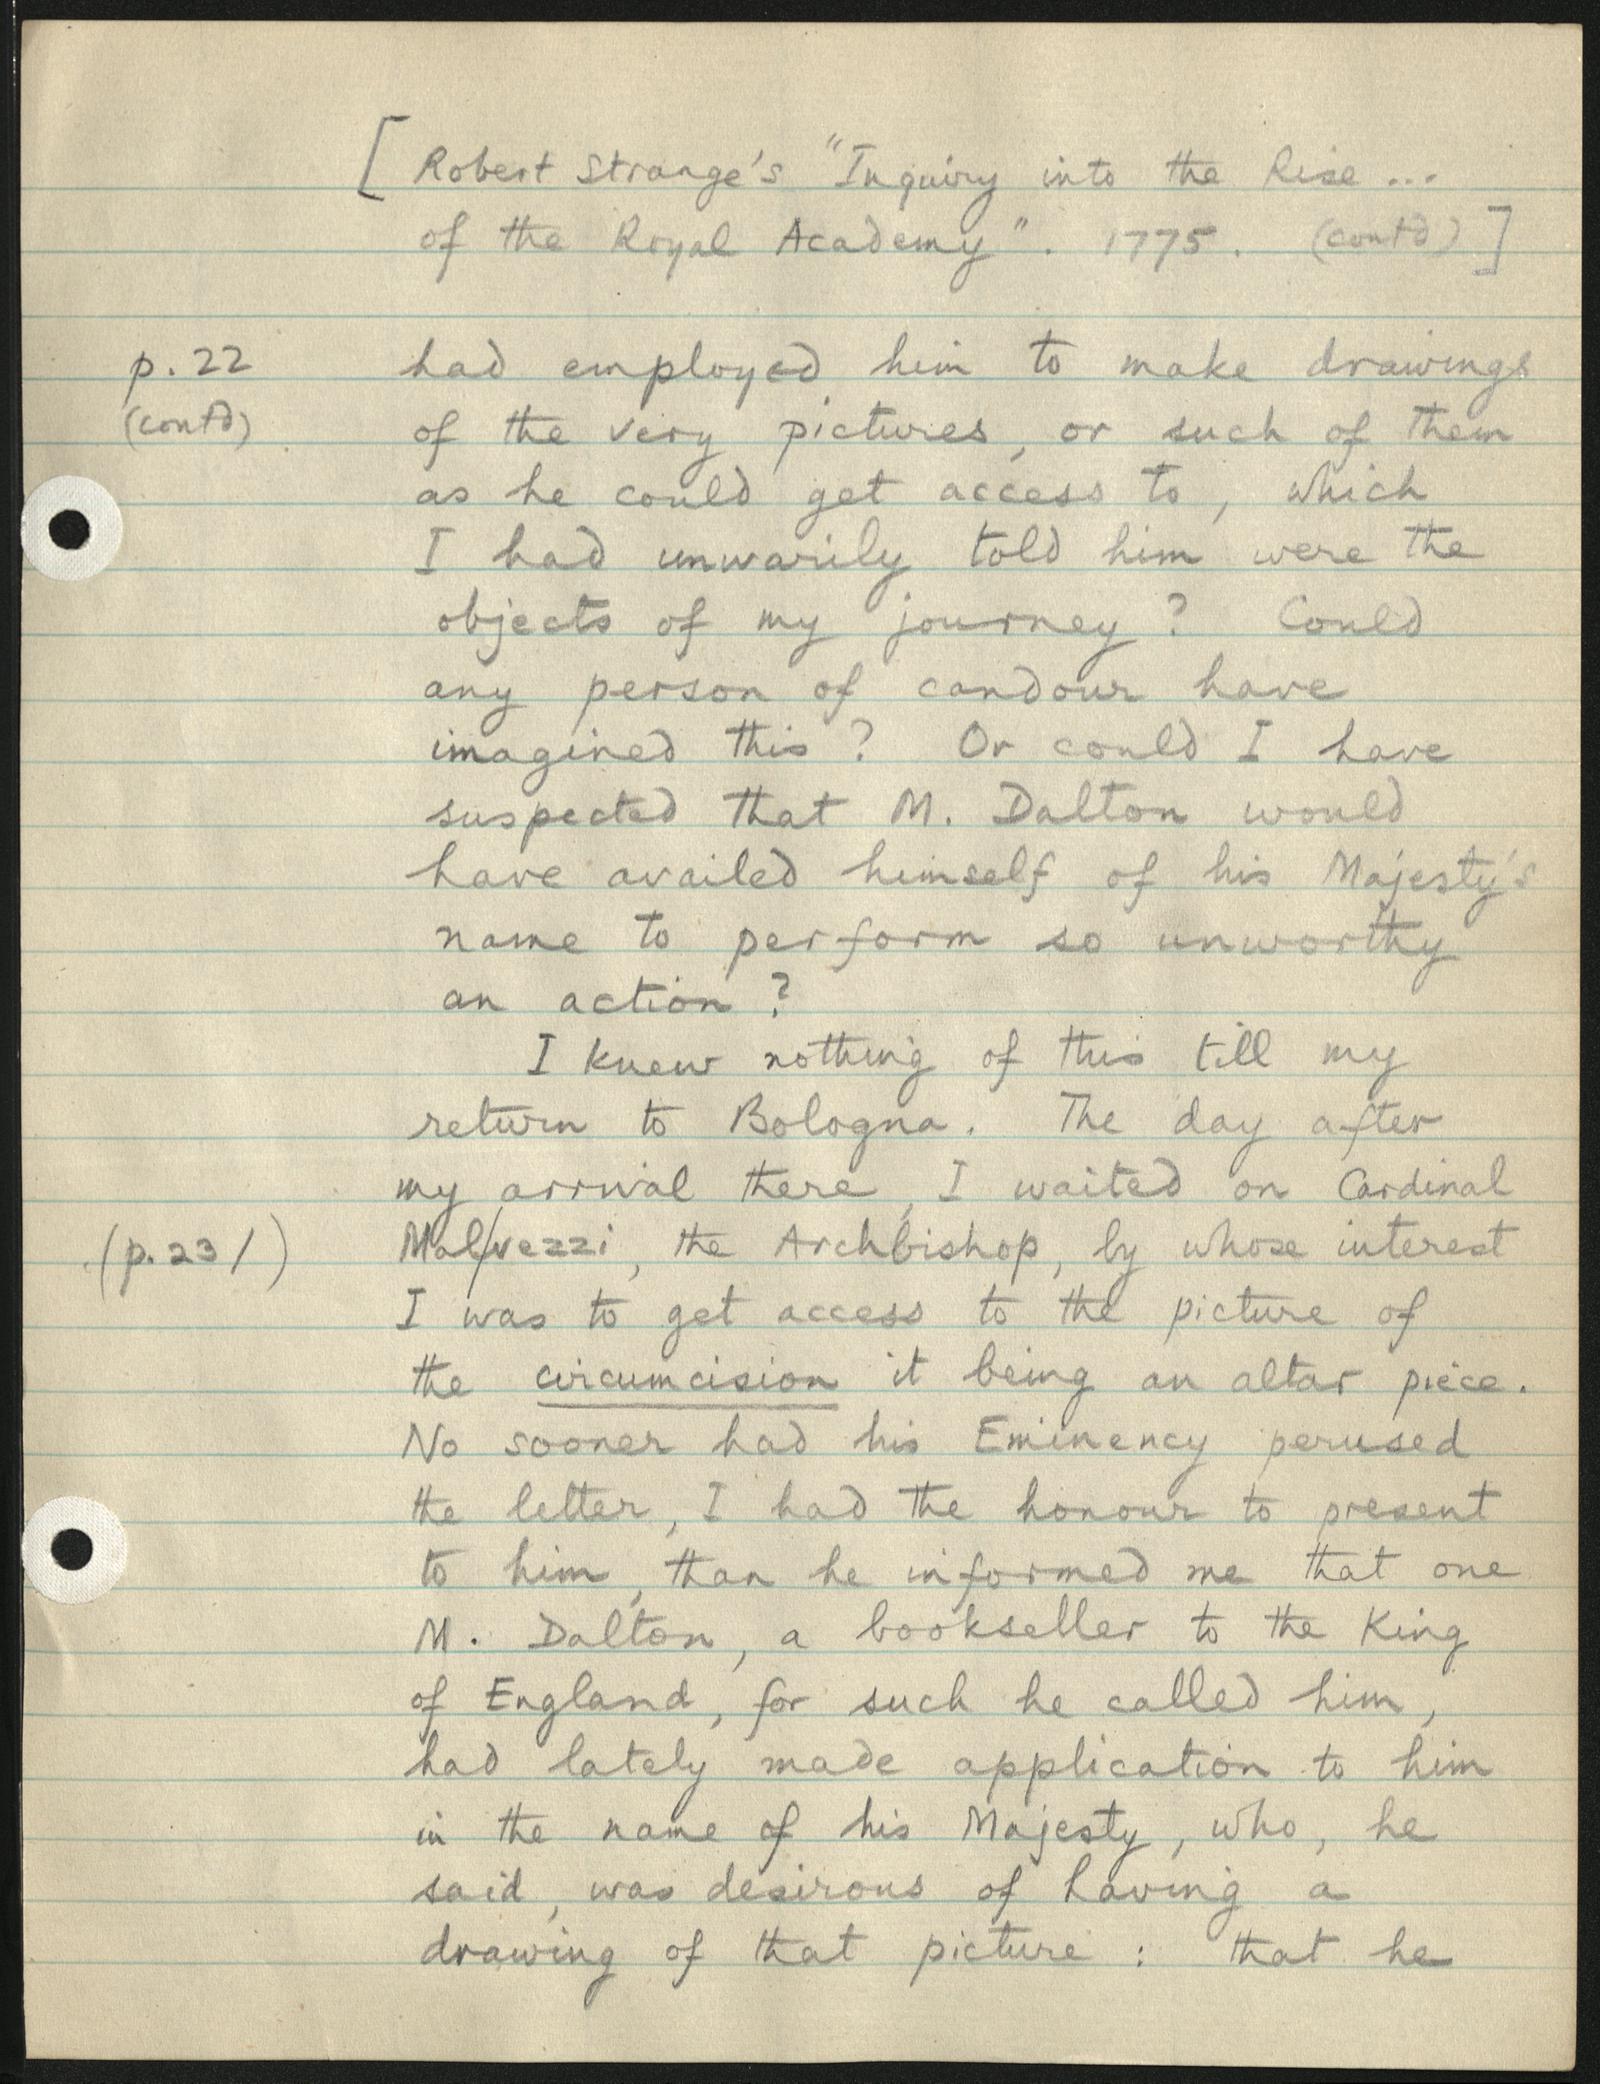 [ Robert Strange's "Inquiry into the Rise ...
of the Royal Academy". 1775. (contd) ]
p. 22 had employed him to make drawings
(contd) of the very pictures, or such of them
as he could get access to, which
I had unwarily told him were the
objects of my journey? Could
any person of candour have
imagined this? Or could I have
suspected that M. Dalton would
have availed himself of his Majesty's
name to perform so unworthy
an action?
I knew nothing of this till my
return to Bologna. The day after
my arrival there, I waited on Cardinal
(p. 23/) Mal/vezzi, the Archbishop, by whose interest
I was to get access to the picture of
the circumcision it being an altar piece.
No sooner had his Eminency perused
the letter, I had the honour to present
to him, than he informed me that one
M. Dalton, a bookseller to the King
of England, for such he called him,
had lately made application to him
in the name of his Majesty, who, he
said, was desirous of having a
drawing of that picture : that he